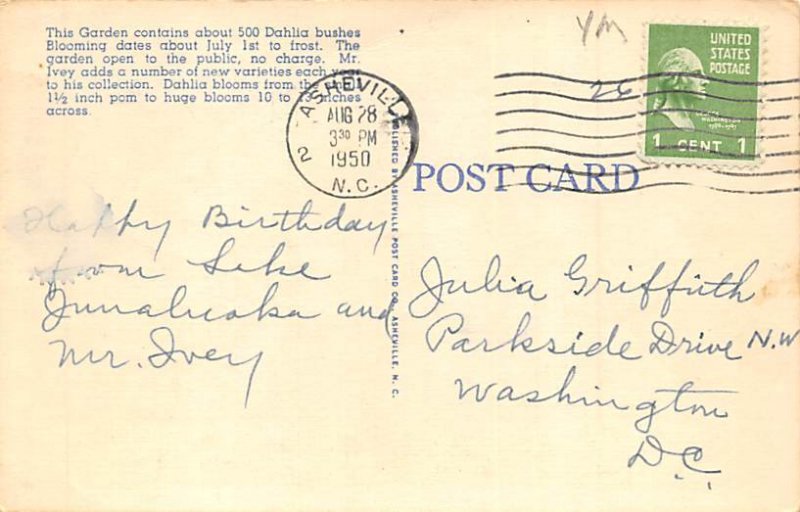 This Garden contains about 500 Dahlia bushes
Blooming dates about July 1st to frost. The
garden open to the public, no charge. Mr.
Ivey adds a number of new varieties each year
to his collection. Dahlia blooms from the
1½ inch pom to huge blooms 10 to inches
across.
YM
26
UNITED
STATES
POSTAGE
GEORGE
WASHINGTON
1 CENT 1
ASHEVILLE
AUG 28
3 30 PM
1950
2
N.C.
PUBLISHED BY ASHEVILLE POST CARD CO., ASHEVILLE, N. C.
POST CARD
Happy Birthday
from Lake
Junaluska and
Mr. Ivey
Julia Griffith
Parkside Drive N.W
Washington
D.C.